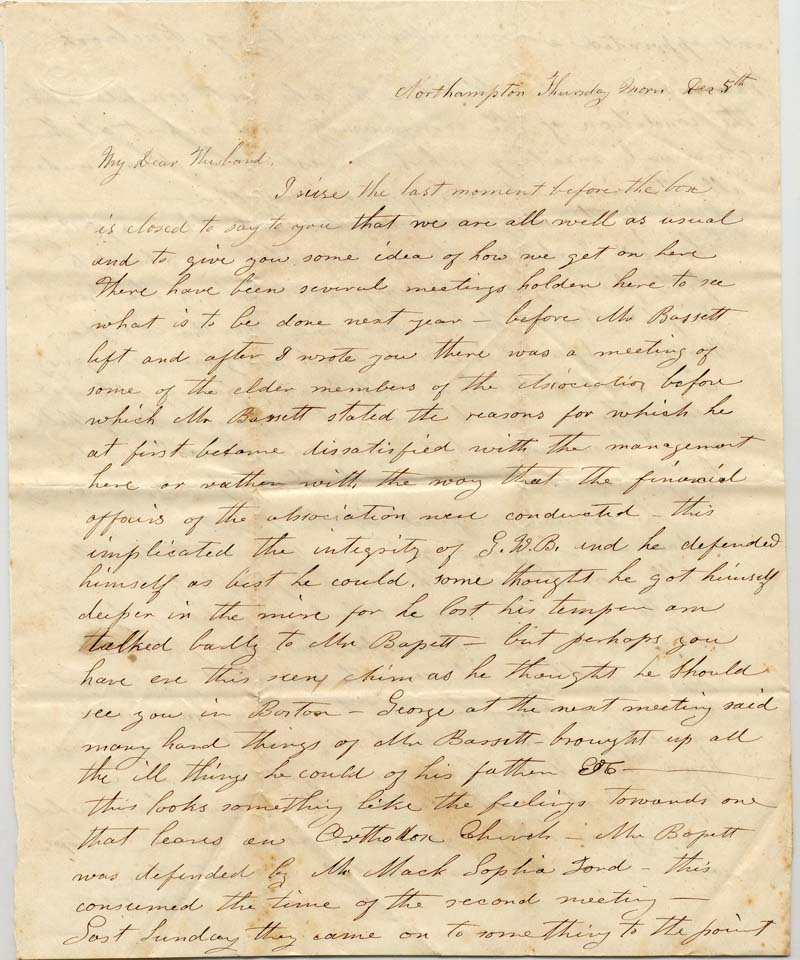 Northampton Thursday Morn Dec 5th
My Dear Husband,
I seise the last moment before the box
is closed to say to you that we are all well as usual
and to give you some idea of how we get on here
There have been several meetings holden here to see
what is to be done next year – before Mr Bassett
left and after I wrote you there was a meeting of
some of the elder members of the Association before
which Mr Bassett stated the reasons for which he
at first became dissatisfied with the management
here or rather with the way that the financial
affairs of the association were conducted – this
implicated the integrity of G. W. B. and he defended
himself as best he could. some thought he got himself
deeper in the mire for he lost his temper an
talked badly to Mr Bassett – but perhaps you
have ere this seen him as he thought he should
see you in Boston – George at the next meeting said
many hard things of Mr Bassett – brought up all
the ill things he could of his father &c –
this looks something like the feelings towards one
that leaves an Orthodox Church – Mr Bassett
was defended by Mr Mack Sophia Ford – this
consumed the time of the second meeting –
Last Sunday they came on to something to the point